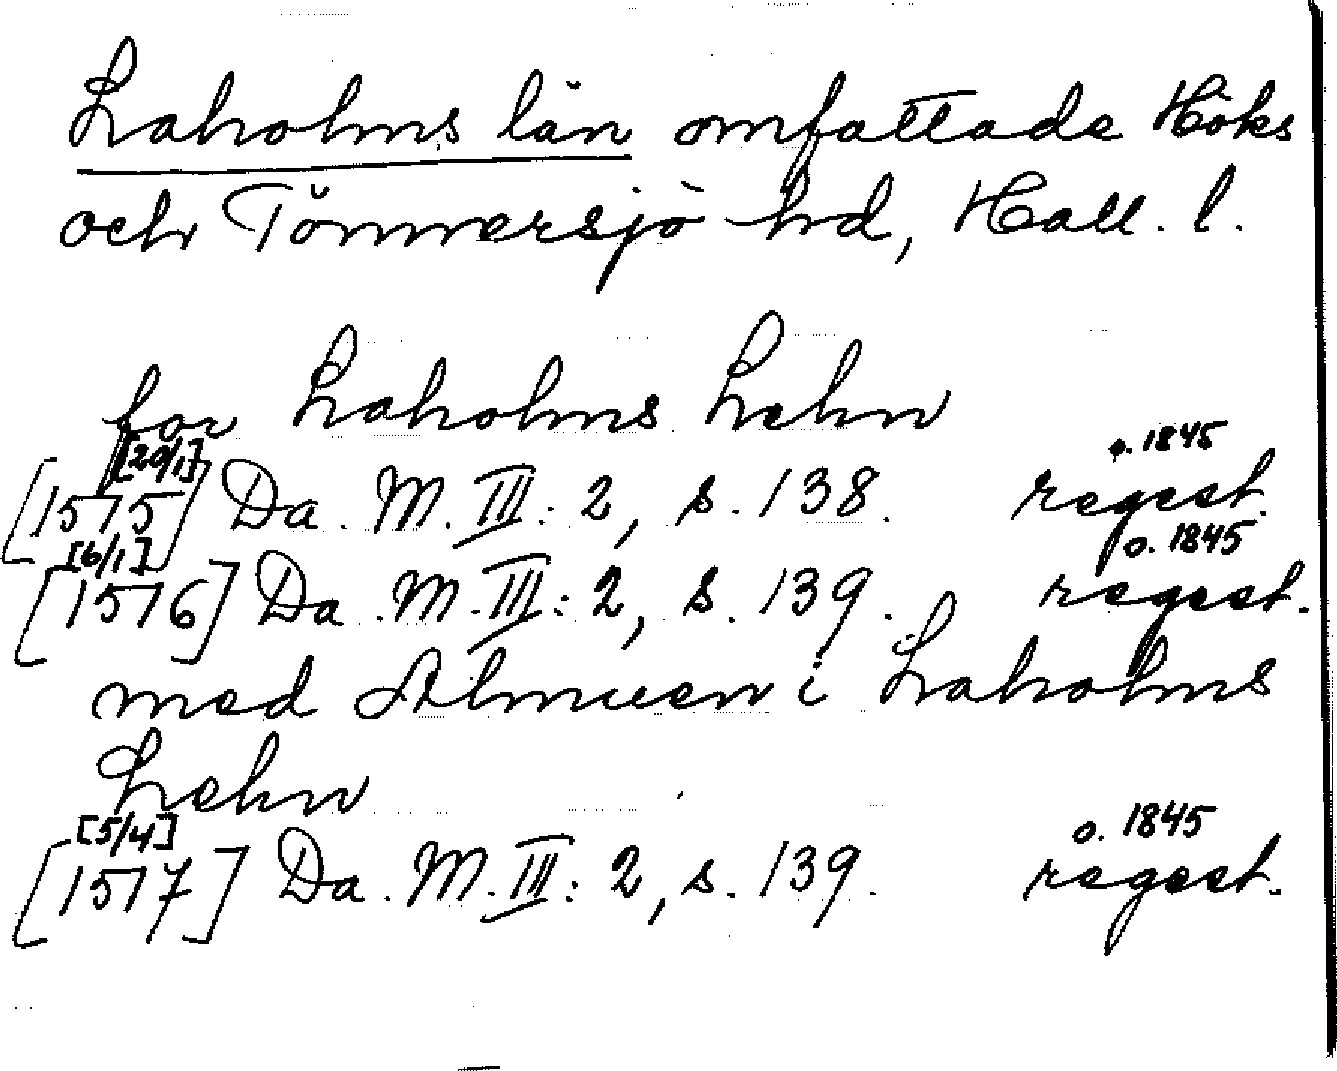 Laholms län omfattade Höks
och Tönnersjö hd, Hall. l.
for Laholms Lehn
[20/1] o. 1845
[1575] Da. M. III: 2, s. 138. regest.
[6/1] o. 1845
[1576] Da. M. III: 2, s. 139. regest.
med Almuen i Laholms
Lehn
[5/4] o. 1845
[1577] Da. M. III: 2, s. 139. regest.